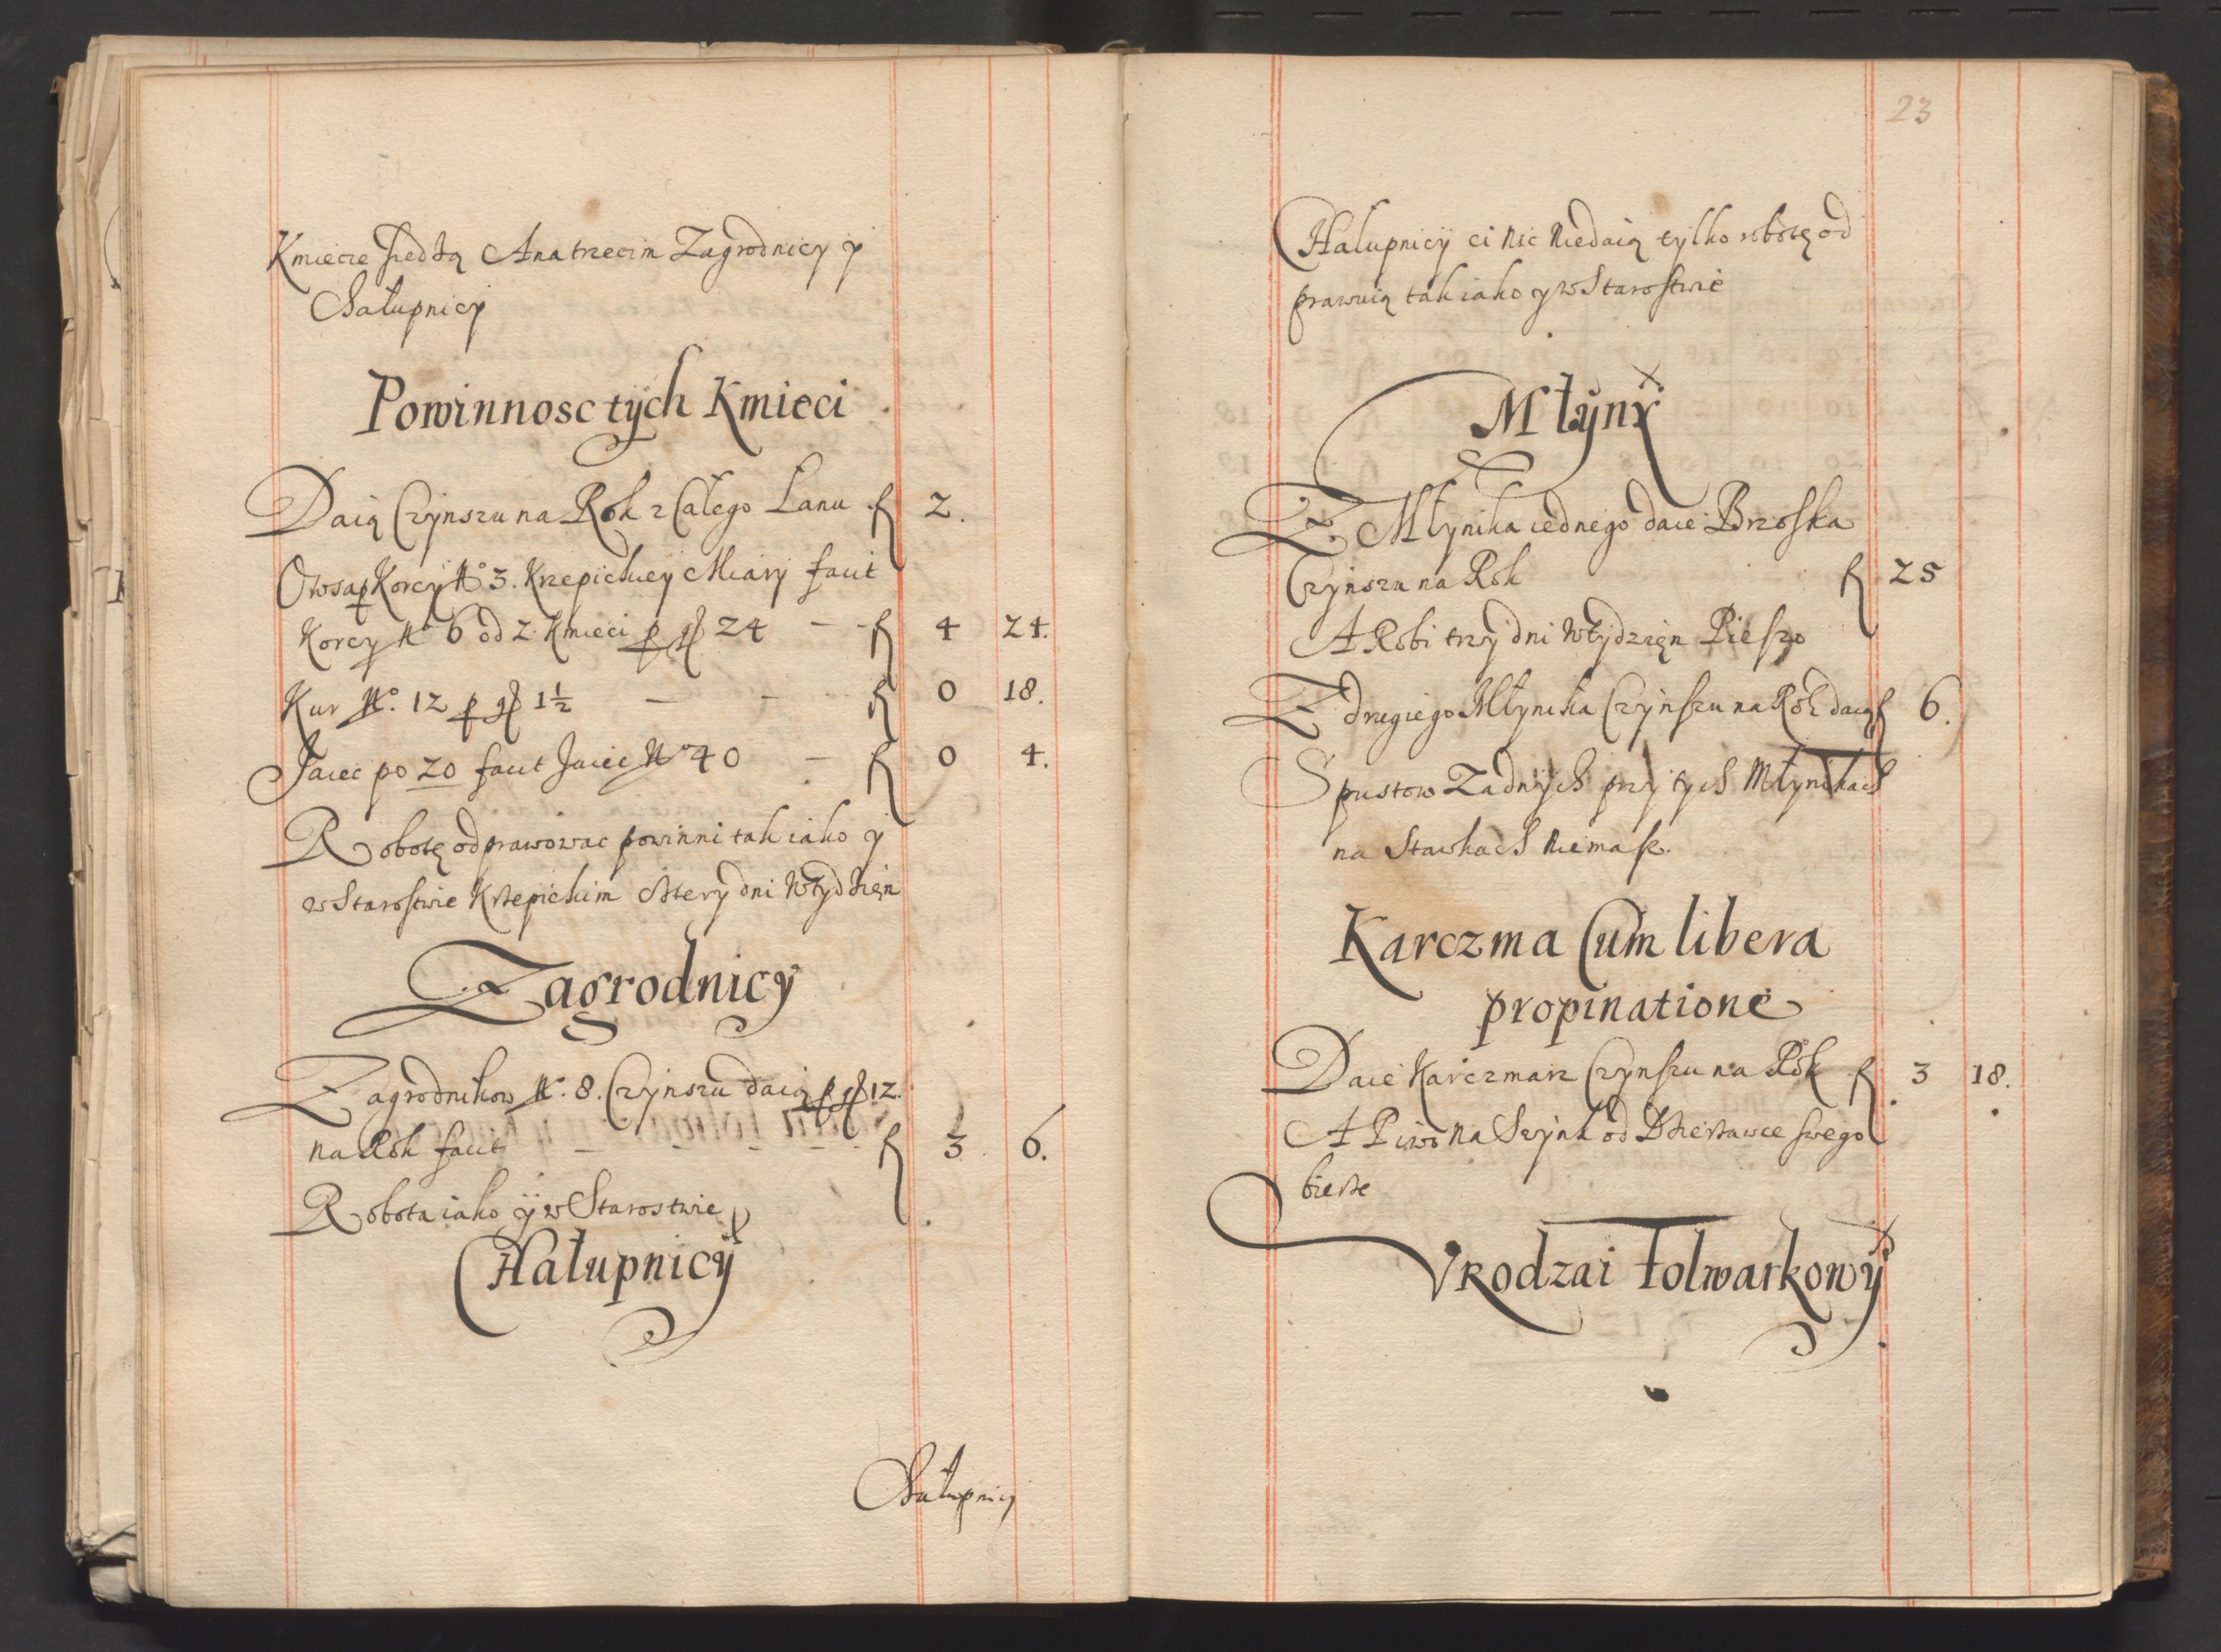 Kmiecie siedzą A na trzecim Zagrodnicy y
Chałupnicy
Powinnosc tych Kmieci
Daią Czynszu na Rok z Całego Łanu f 2.
Owsa p Korcy No 3. Krzepickiey Miary facit
Korcy No 6 od 2 Kmieci p gr 24 - - f 4 24.
Kur No. 12 p gr 1½ - - f 0 18.
Jaiec po 20 facit Jaiec No 40 - f 0 4.
Robotę odprawowac powinni tak iako y
w Starostwie Krzepickim cztery dni w tydzięn
Zagrodnicy
Zagrodnikow No. 8. Czynszu daią p gr 12.
na Rok facit - - - - f 3. 6.
Robota iako y w Starostwie
Chałupnicy
Chałupnicy
23
Chałupnicy ci nic niedaią tylko robotę od
prawuią tak iako y w Starostwie
Młyny
Z Młynika iednego daie Brzoska
Czynszu na Rok f 25
A Robi trzy dni w tydzięn Pieszo
Z drugiego Młynika Czynszu na Rok daią f 6.
Spustow Zadnych przy tych Młynikach
na Stawkach niemasz.
Karczma Cum libera
propinatione
Daie Karczmarz Czynszu na Rok f 3 18.
A Piwo na Szynk od Dzierzawce swego
bierze
Vrodzai folwarkowy